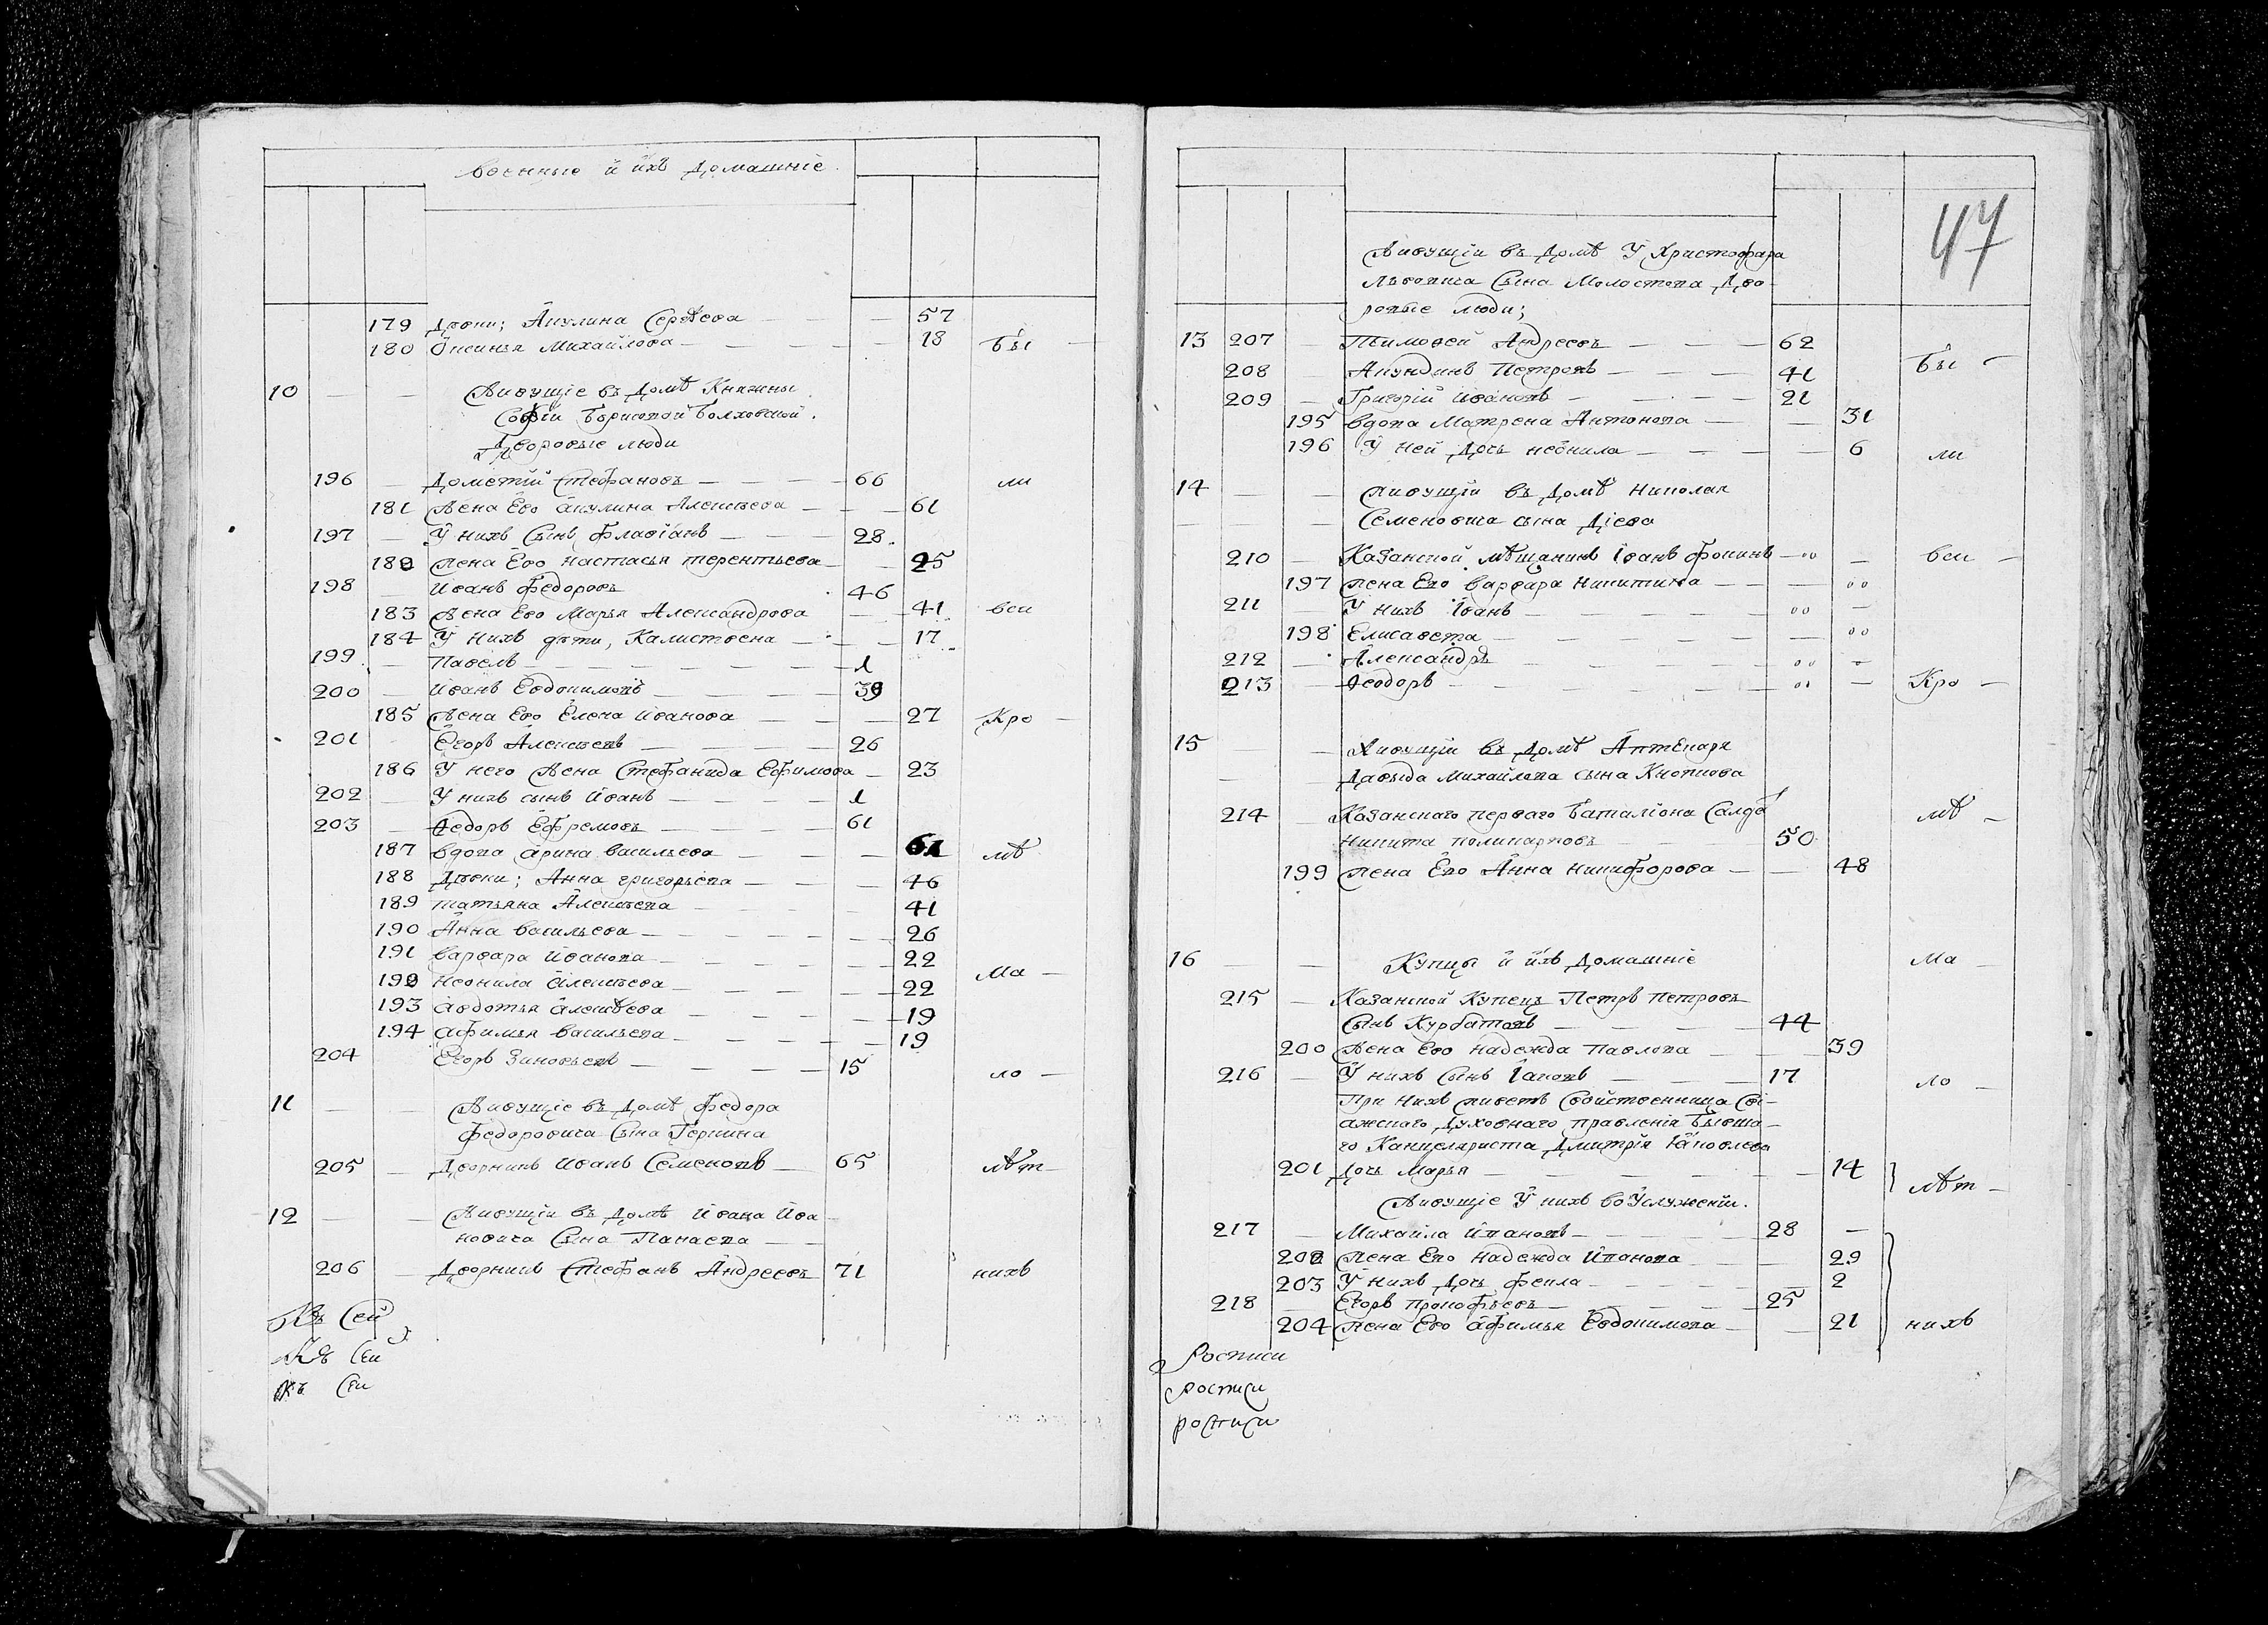 военные и ихъ Домашніе
179 Дѣвки; Акулина Сергѣева — 57
180 Ксинья Михайлова — 18 бы —
10 — — Живущіе въ Домѣ Княжны
Софіи Борисовой Болховской.
Дворовые люди
196 — Дометій Стефановъ — 66 ли
181 Жена Его Акулина Алексѣева — 61
197 — У нихъ Сынъ Флавіанъ — 28
182 жена Его настасья терентьева — 25
198 — Иванъ Федоровъ 46
183 Жена Его Марья Александрова — 41 вси
184 У нихъ дѣти, Калиствена — 17
199 — Павелъ — 1
200 — Иванъ Евдокимовъ — 39
185 Жена Его Елена Иванова — 27 Кро —
201 Егоръ Алексѣевъ — 26
186 У него Жена Стефанида Ефимова — 23
202 — У нихъ сынъ Иванъ — 1
203 — Ѳедоръ Ефремовъ — 61
187 вдова Арина васильева — 61 мѣ
188 Дѣвки; Анна григорьева — 46
189 татьяна Алексѣева — 41
190 Анна васильева — 26
191 варвара Иванова — 22
192 неонила Алексѣева — 22 Ма —
193 авдотья Алексѣева — 19
194 афимья васильева — 19
204 Егоръ Зиновьевъ — 15 ло —
11 — — Живущіе въ Домѣ Федора
Федоровича Сына Геркина
205 — Дворникъ Иванъ Семеновъ — 65 лѣт —
12 — — Живущіи въ Домѣ Ивана Ива
новича Сына Панаева —
206 — Дворникъ Стефанъ Андреевъ 71 нихъ
Къ Сей
Къ Сей
Къ Сей
47
Живущіи въ Домѣ У Христофара
Львовича Сына Молоствова Дво
ровые люди;
13 207 — Тимофей Андреевъ — 62
208 — Акундинъ Петровъ — 41 бы —
209 — Григорій Ивановъ — 21
195 вдова Матрена Антонова — 31
196 У ней Дочь неонила — 6 ли
14 — — живущіи въ Домѣ Николая
— — Семеновича сына Діева
210 — Казанской мѣщанинъ Іванъ Фокинъ — вси —
197 жена Его варвара Никитина —
211 У нихъ Іванъ —
198 Елисавета —
212 — Александръ —
213 — Ѳеодоръ — Кро —
15 — Живущіи въ Домѣ Аптекаря
— — Давыда Михайлова сына Кнопкова
214 — Казанскаго перваго баталіона Салда мѣ —
никита поликарповъ 50
199 жена Его Анна никифорова — 48
16 — — Купцы и ихъ Домашніе Ма —
215 — Казанской Купецъ Петръ Петровъ
Сынъ Курбатовъ — 44
200 Жена Его надежда Павлова — 39
216 — У нихъ Сынъ Іаковъ — 17 ло —
При нихъ живетъ Свойственница Сві-
ажскаго Духовнаго правленія Бывша-
го Канцеляриста Дмитрія Іаковлева
201 Дочь Марья — 14 лѣт —
Живущіе У нихъ воУслуженіи.
217 — Михайла Ивановъ — 28 —
202 жена Его надежда Иванова — 29
203 У нихъ Дочь Фекла — 2
218 — Егоръ прокофьевъ — 25
204 жена Его афимья Евдокимова — 21 нихъ
Росписи
росписи
росписи